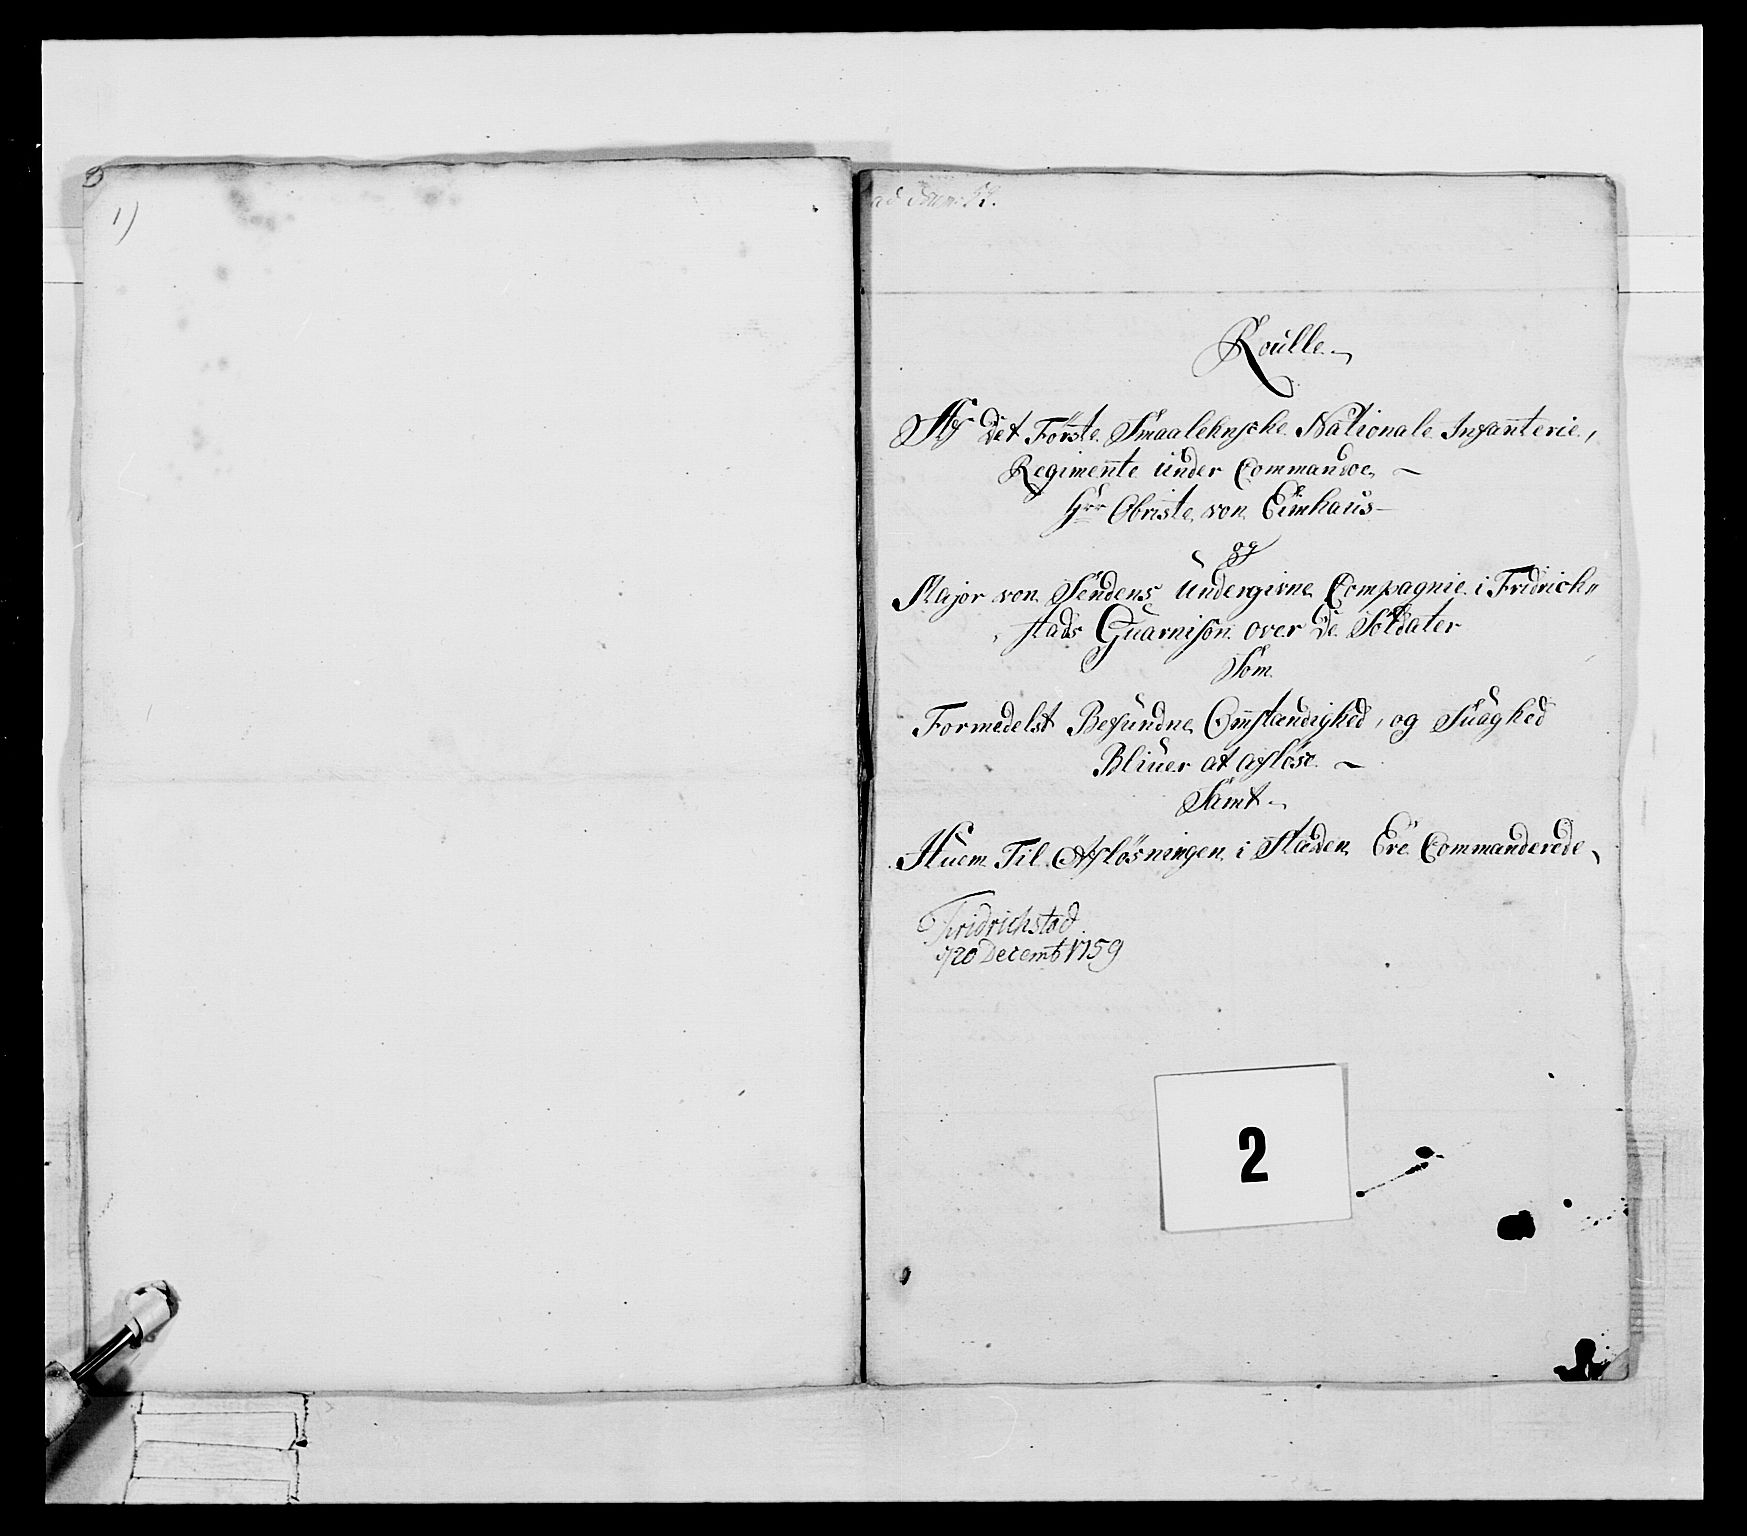 1)
ad Num: 59.
Roulle
Af det Förste Smaalehnske Nationale Infanterie,
Regimente under Commandoe
Hrr Obriste von Eimhaus
og
Major von Sendens undergivne Compagnie i Fridrich„
stads Guarnison over de Soldater
Som
Formedelst Befundne Omstændighed, og Suaghed
Bliver at afløse
Samt
Huem Til Afløsningen i Staden Ere Commanderede
Fridrichstad
d 20 Decembr 1759
2